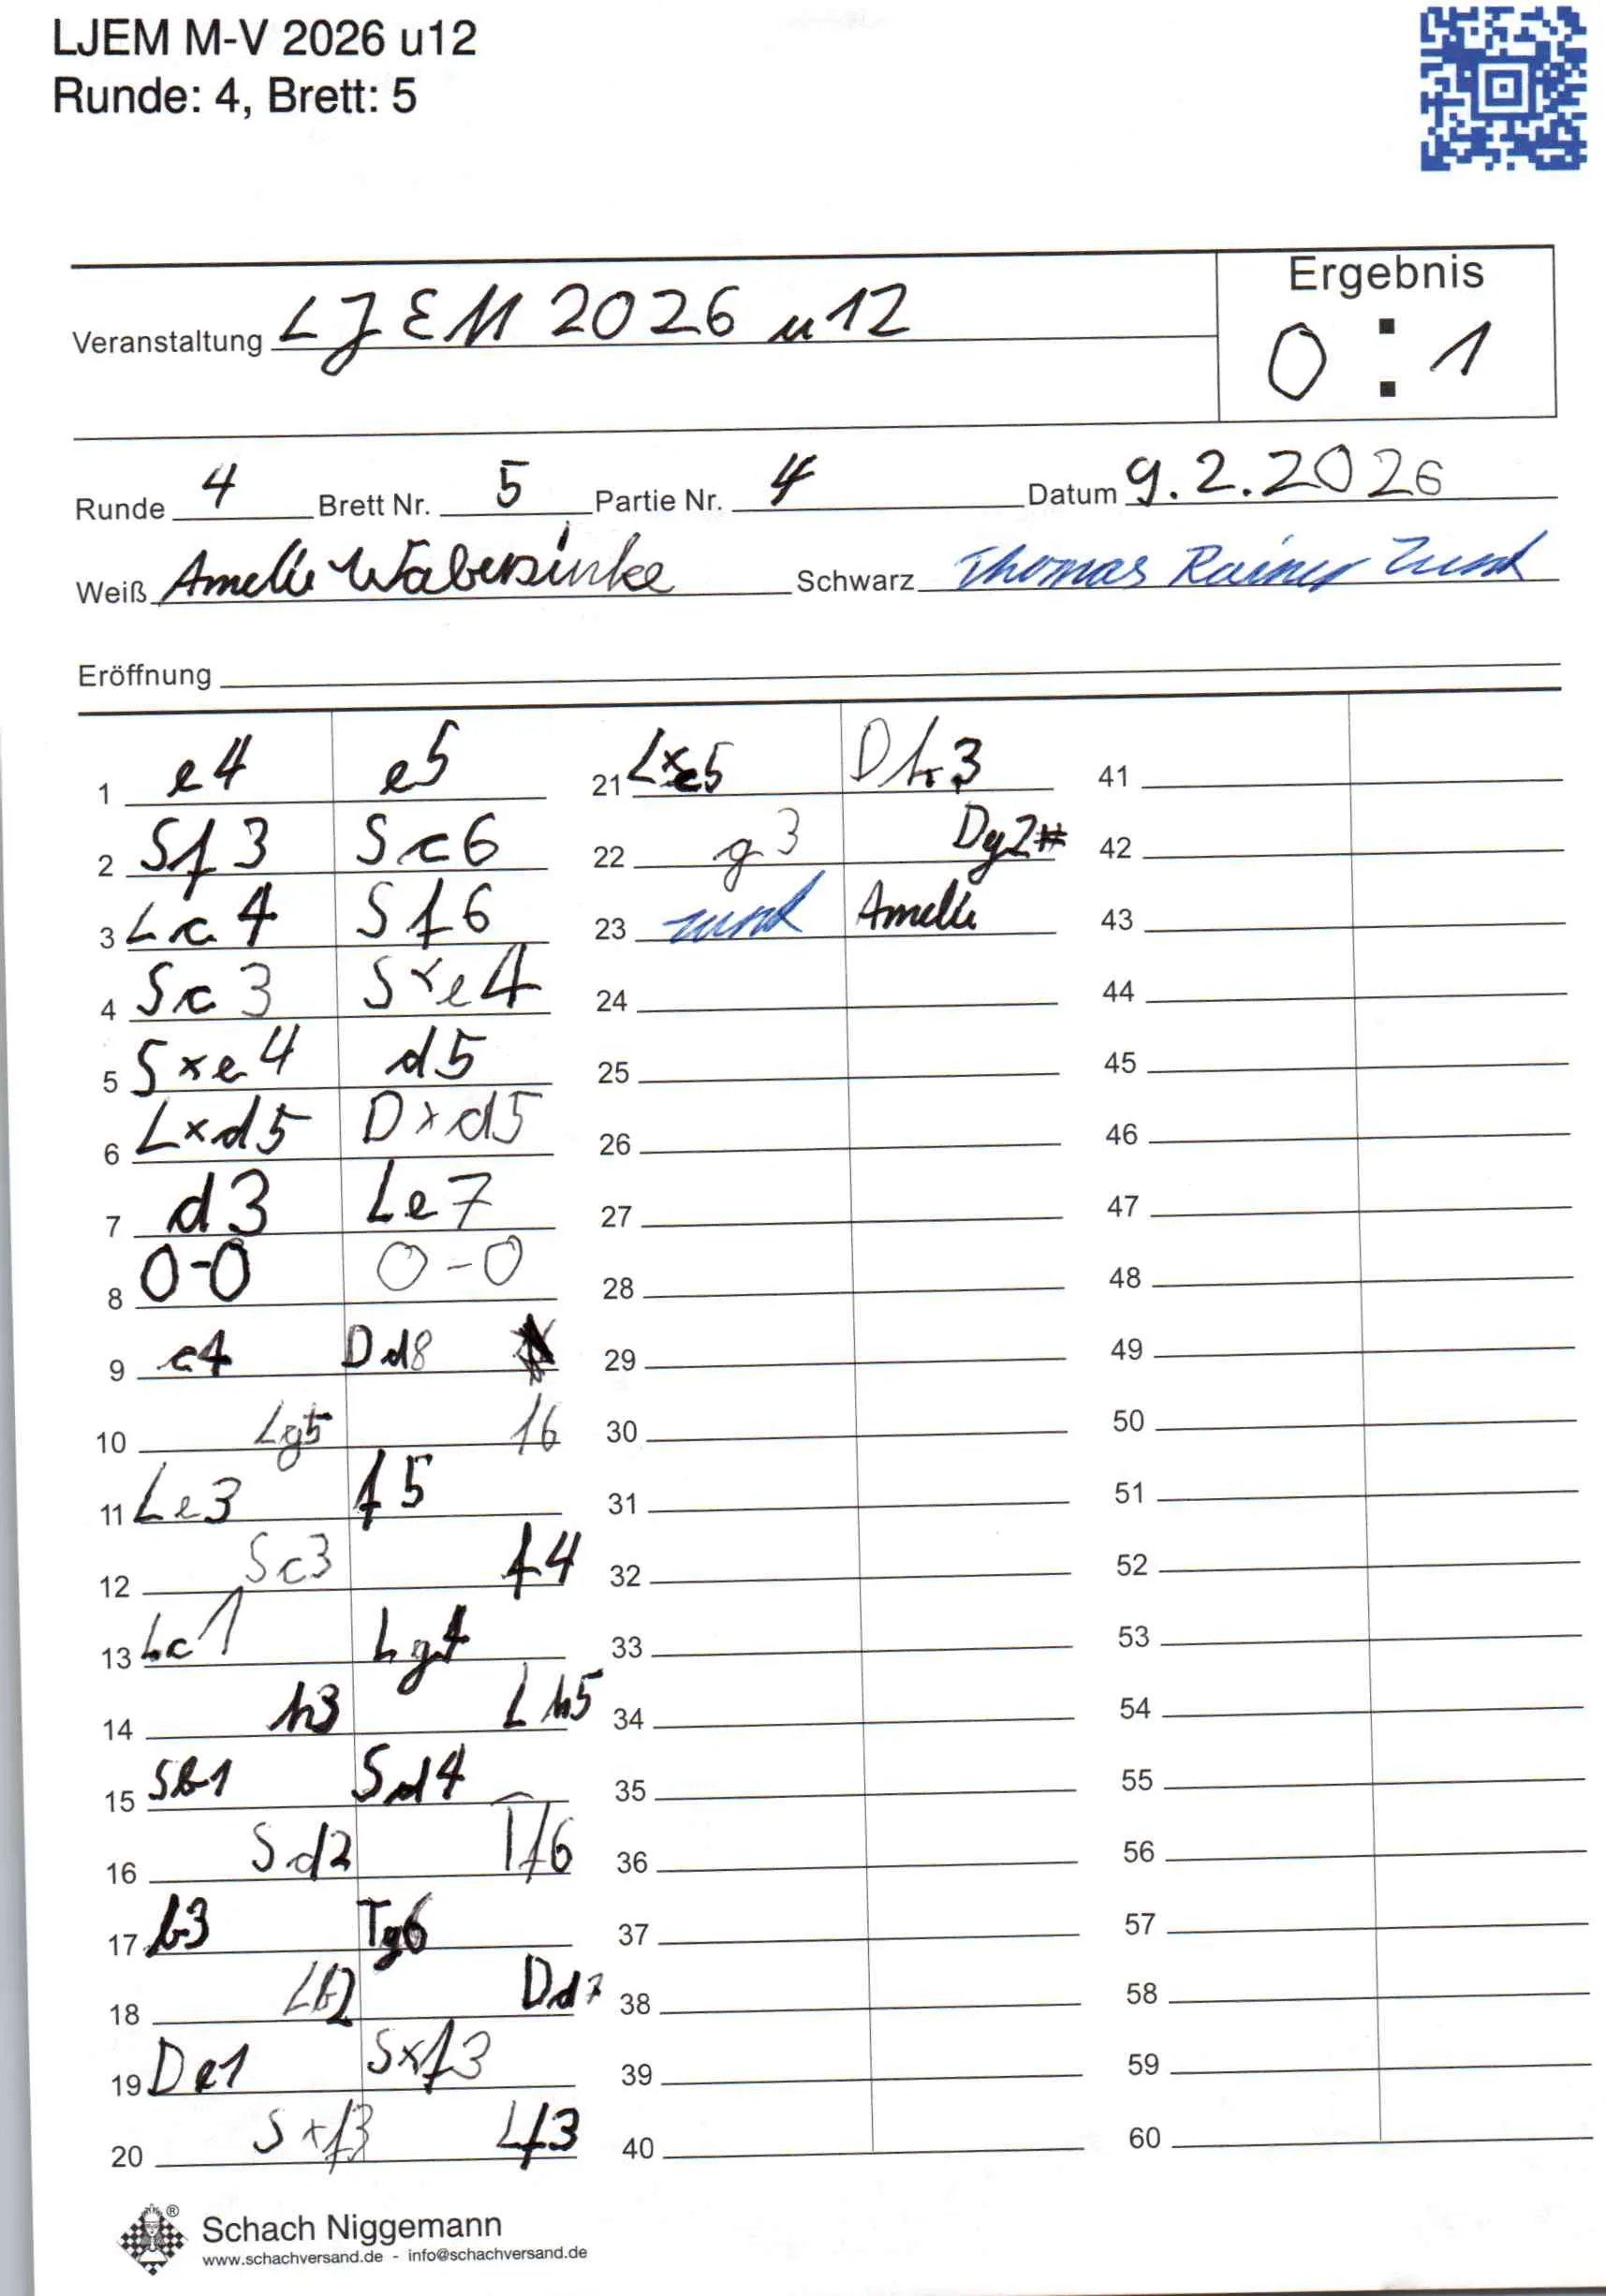 LJEM M-V 2026 u12
Runde: 4, Brett: 5
Ergebnis
Veranstaltung LJEM 2026 u12
0 : 1
Runde 4 Brett Nr. 5 Partie Nr. 4 Datum 9.2.2026
Weiß Amelie Wabersinke Schwarz Thomas Rainer Zund
Eröffnung
1 e4 e5
2 Sf3 Sc6
3 Lc4 Sf6
4 Sc3 Sxe4
5 Sxe4 d5
6 Lxd5 Dxd5
7 d3 Le7
8 0-0 0-0
9 c4 Dd8
10 Lg5 f6
11 Le3 f5
12 Sc3 f4
13 Lc1 Lg4
14 h3 Lh5
15 Sb1 Sd4
16 Sd2 Tf6
17 b3 Tg6
18 Lb2 Dd7
19 De1 Sxf3
20 Sxf3 Lf3
21 Lxe5 Dh3
22 g3 Dg2#
23 Zund Amelie
24
25
26
27
28
29
30
31
32
33
34
35
36
37
38
39
40
41
42
43
44
45
46
47
48
49
50
51
52
53
54
55
56
57
58
59
60
® Schach Niggemann
www.schachversand.de - info@schachversand.de